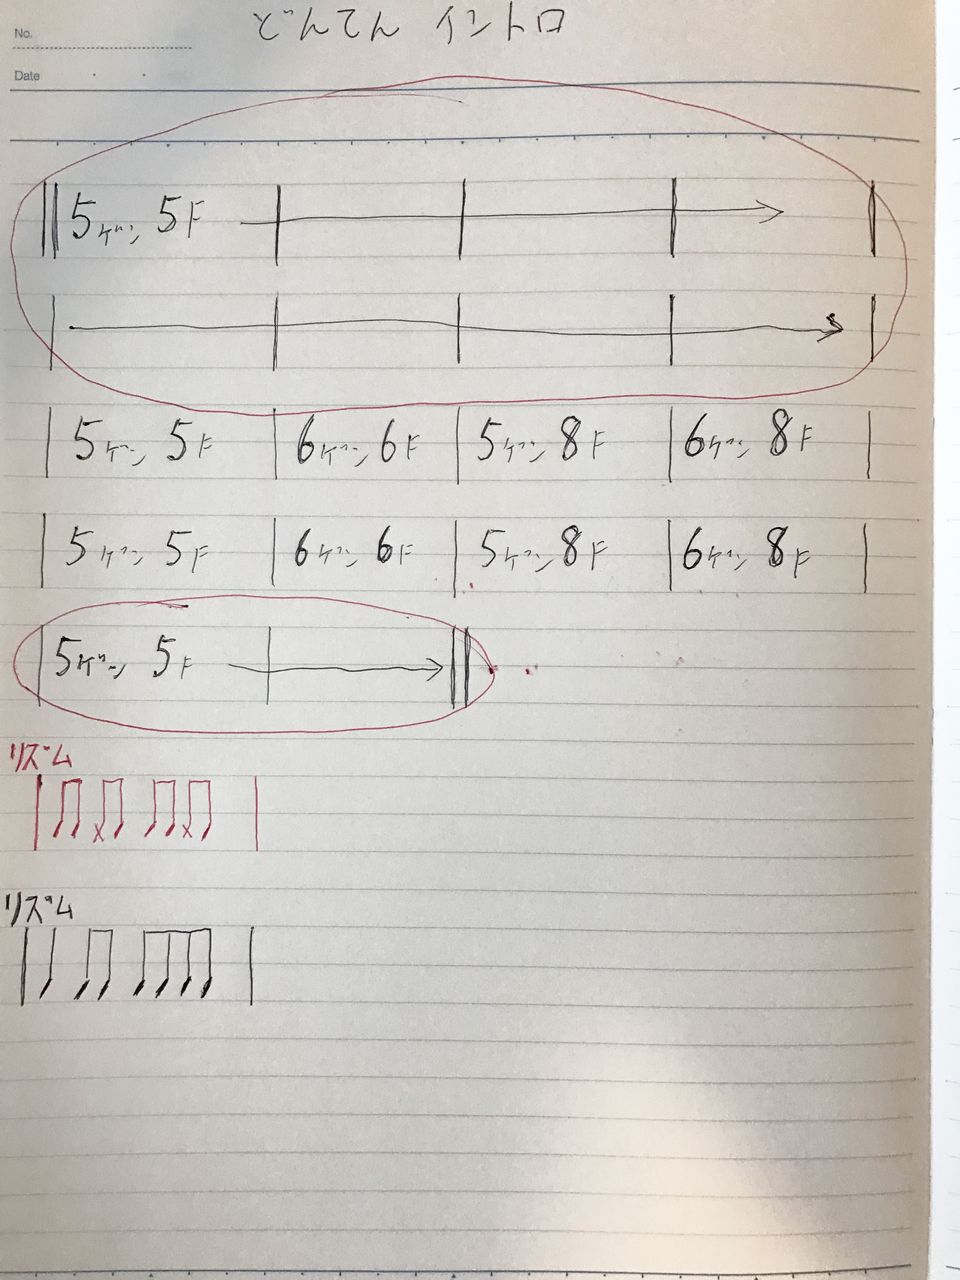 どんてん イントロ
No.
Date
5ゲン, 5F
5ゲン, 5F 6ゲン, 6F 5ゲン, 8F 6ゲン, 8F
5ゲン, 5F 6ゲン, 6F 5ゲン, 8F 6ゲン, 8F
5ゲン, 5F
リズム
リズム